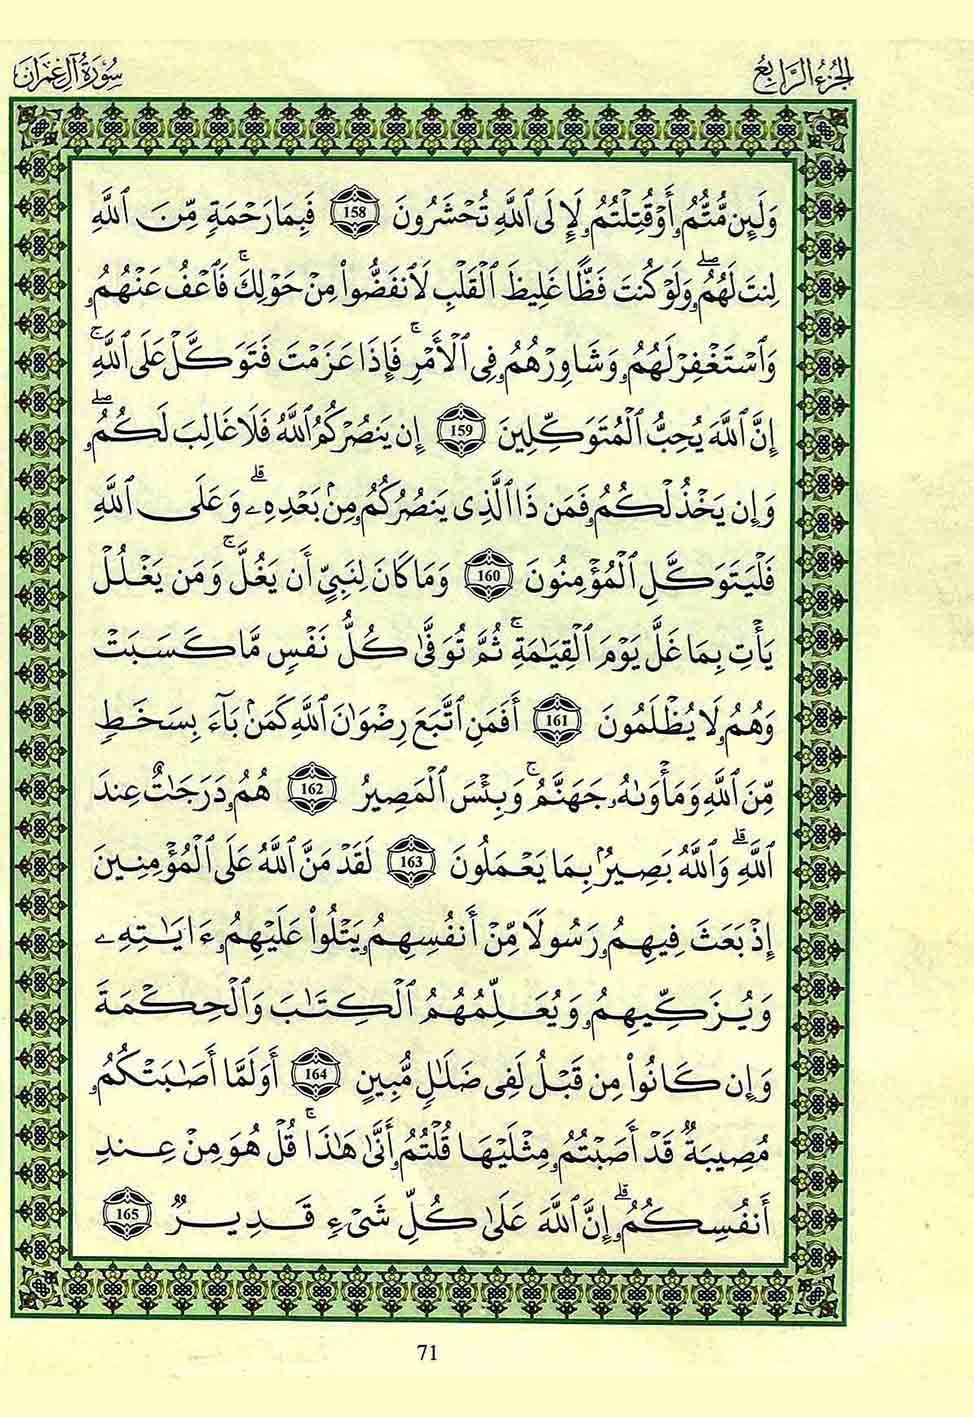 الجُزْءُ الرَّابِعُ
سُورَةُ آلِ عِمْرَانَ
وَلَئِن مُّتُّمُۥ أَوْ قُتِلْتُمُۥ لَإِلَى ٱللَّهِ تُحْشَرُونَ 158 فَبِمَا رَحْمَةٍ مِّنَ ٱللَّهِ
لِنتَ لَهُمُۥۖ وَلَوْ كُنتَ فَظًّا غَلِيظَ ٱلْقَلْبِ لَٱنفَضُّوا۟ مِنْ حَوْلِكَۚ فَٱعْفُ عَنْهُمُۥ
وَٱسْتَغْفِرْ لَهُمُۥ وَشَاوِرْهُمُۥ فِى ٱلْأَمْرِۚ فَإِذَا عَزَمْتَ فَتَوَكَّلْ عَلَى ٱللَّهِۚ
إِنَّ ٱللَّهَ يُحِبُّ ٱلْمُتَوَكِّلِينَ 159 إِن يَنصُرْكُمُ ٱللَّهُ فَلَا غَالِبَ لَكُمُۥۖ
وَإِن يَخْذُلْكُمُۥ فَمَن ذَا ٱلَّذِى يَنصُرُكُمُۥ مِنۢ بَعْدِهِۦۗ وَعَلَى ٱللَّهِ
فَلْيَتَوَكَّلِ ٱلْمُؤْمِنُونَ 160 وَمَا كَانَ لِنَبِىٍّ أَن يَغُلَّۚ وَمَن يَغْلُلْ
يَأْتِ بِمَا غَلَّ يَوْمَ ٱلْقِيَٰمَةِۚ ثُمَّ تُوَفَّىٰ كُلُّ نَفْسٍ مَّا كَسَبَتْ
وَهُمُۥ لَا يُظْلَمُونَ 161 أَفَمَنِ ٱتَّبَعَ رِضْوَٰنَ ٱللَّهِ كَمَنۢ بَآءَ بِسَخَطٍ
مِّنَ ٱللَّهِ وَمَأْوَىٰهُۥ جَهَنَّمُۚ وَبِئْسَ ٱلْمَصِيرُ 162 هُمُۥ دَرَجَٰتٌ عِندَ
ٱللَّهِۗ وَٱللَّهُ بَصِيرٌۢ بِمَا يَعْمَلُونَ 163 لَقَدْ مَنَّ ٱللَّهُ عَلَى ٱلْمُؤْمِنِينَ
إِذْ بَعَثَ فِيهِمُۥ رَسُولًا مِّنْ أَنفُسِهِمُۥ يَتْلُوا۟ عَلَيْهِمُۥ ءَايَٰتِهِۦ
وَيُزَكِّيهِمُۥ وَيُعَلِّمُهُمُ ٱلْكِتَٰبَ وَٱلْحِكْمَةَ
وَإِن كَانُوا۟ مِن قَبْلُ لَفِى ضَلَٰلٍ مُّبِينٍ 164 أَوَلَمَّا أَصَٰبَتْكُمُۥ
مُصِيبَةٌ قَدْ أَصَبْتُمُۥ مِثْلَيْهَا قُلْتُمُۥ أَنَّىٰ هَٰذَاۚ قُلْ هُوَ مِنْ عِندِ
أَنفُسِكُمُۥۗ إِنَّ ٱللَّهَ عَلَىٰ كُلِّ شَىْءٍ قَدِيرٌ 165
71